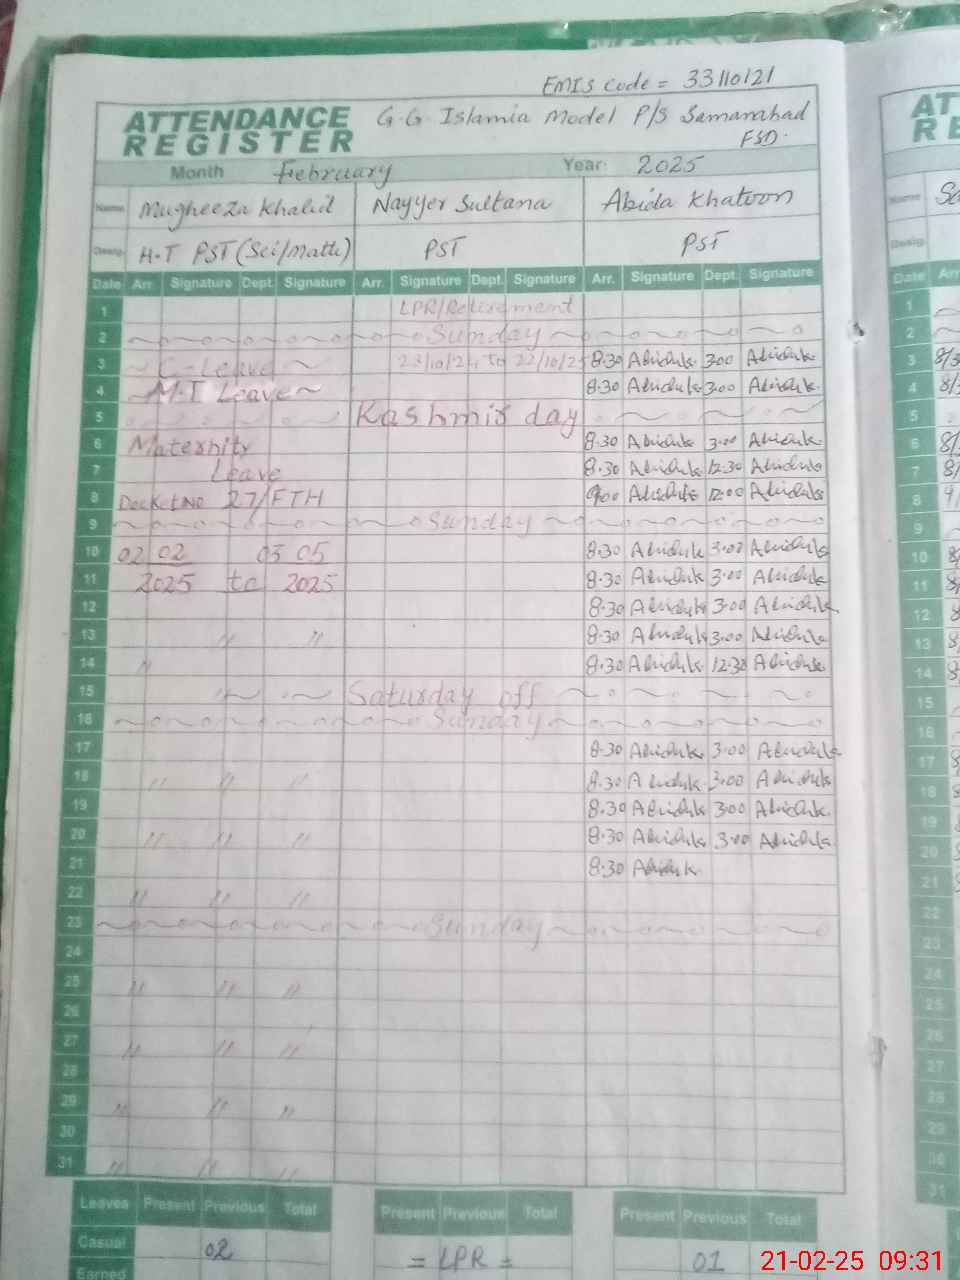 EMIS code = 33110121
ATTENDANCE REGISTER G.G. Islamia Model P/S Samanabad
FSD.
Month February Year: 2025
Name Mugheeza Khalid Nayyer Sultana Abida Khatoon
Desig. H.T PST (Sci/Math) PST PST
Date Arr. Signature Dept. Signature Arr. Signature Dept. Signature Arr. Signature Dept. Signature
1 LPR/Retirement
2 Sunday
3 C-Leave 23/10/24 to 22/10/25 8:30 Abidak 3:00 Abidak
4 M.T Leave 8:30 Abidak 3:00 Abidak
5 Kashmir day
6 Maternity 8:30 Abidak 3:00 Abidak
7 Leave 8:30 Abidak 12:30 Abidak
8 27/FTH 9:00 Abidak 12:00 Abidak
9 Sunday
10 02 02 05 05 8:30 Abidak 3:00 Abidak
11 2025 to 2025 8:30 Abidak 3:00 Abidak
12 8:30 Abidak 3:00 Abidak
13 " " 8:30 Abidak 3:00 Abidak
14 " 8:30 Abidak 12:30 Abidak
15 Saturday off
16 Sunday
17 8:30 Abidak 3:00 Abidak
18 " " " 8:30 Abidak 3:00 Abidak
19 8:30 Abidak 3:00 Abidak
20 " " " 8:30 Abidak 3:00 Abidak
21 8:30 Abidak
22 " " "
23 Sunday
24
25 " " "
26
27 " " "
28
29 " " "
30
31 " " "
Leaves Present Previous Total Present Previous Total Present Previous Total
Casual 02 = LPR = 01
Earned
21-02-25 09:31